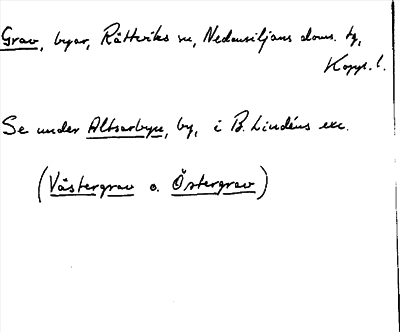 Grav, byar, Rättviks sn, Nedansiljans doms. tg,
Kopp. l.
Se under Altsarbyn, by, i B. Lindéns exc.
(Västergrav o. Östergrav)